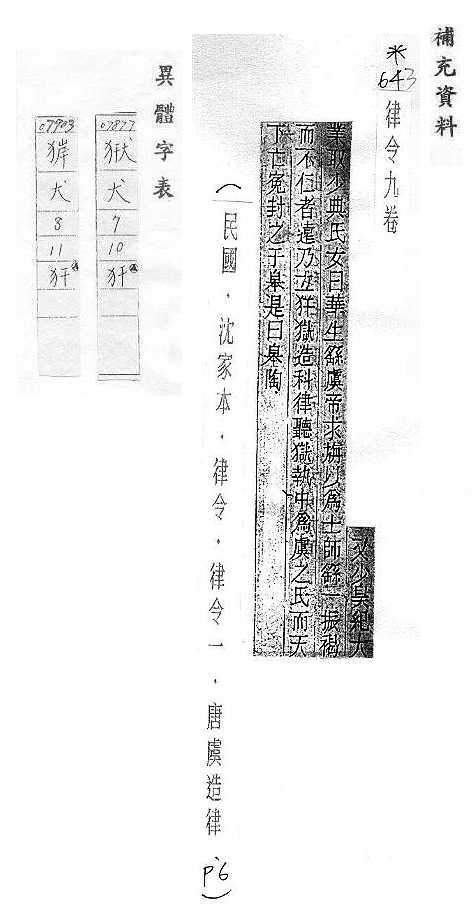 補充資料
*
643
律令九卷
又少昊紀大
業取少典氏女曰華生繇虞帝求旃以為士師繇一振褐
而不仁者遠乃立犴獄造科律聽獄執中為虞之氏而天
下亡冤封之于皋是曰皋陶
(民國．沈家本．律令．律令一．唐虞造律
P6)
異體字表
07877
犬
7
10
犴
07903
犬
8
11
犴